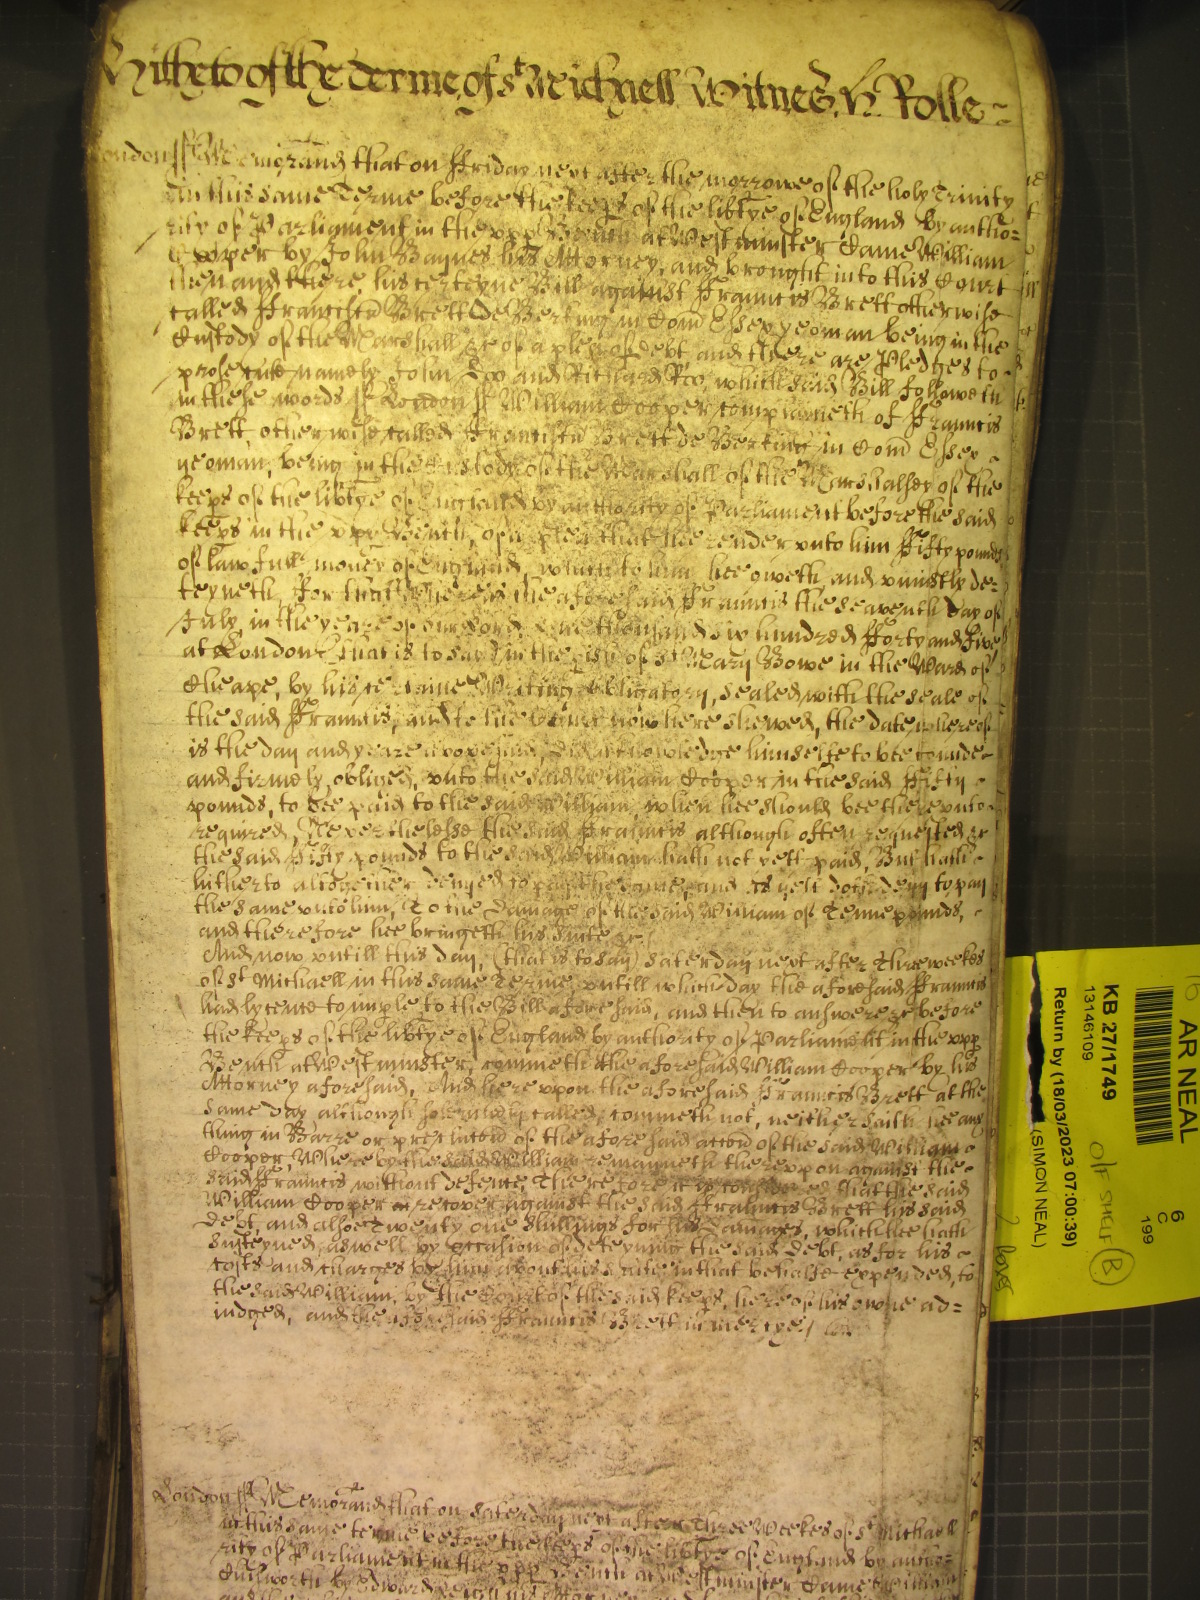 Hitherto of the Terme of St Michaell Witnes H Rolle
London ss Memorand that on Ffriday next after the morrowe of the holy Trinity
in this same Terme before the keeps of the libtye of England by autho=
rity of Parliament in the upp Bench at Westminster Came William
Cooper by John Baynes his Attorney, and brought into this Court
then and there, his certeyne Bill against Ffrauncis Brett otherwise
called Ffranciscu Brett de Berking in Com Essex yeoman being in the
Custody of the Marshall &c of a plea of debt and there are Pledges to
prosecute namely John Doo and Richard Roo, which said Bill followeth
in these words ss London ss William Cooper complaineth of Ffrauncis
Brett, otherwise called Ffranciscu Brett de Berking in Com Essex
yeoman, being in the Custody of the Marshall of the Marshalsey of the
keeps of the libtye of England by authority of Parliament before the said
keeps in the upp Bench, of a plea that hee render vnto him Ffifty pounds
of lawfull money of England, which to him hee oweth and vniustly de=
teyneth, For that whereas the aforesaid Ffrauncis the seaventh day of
July, in the yeare of our Lord, one thousand six hundred Fforty and Five
at London that is to say in the pish of St Mary Bowe in the Ward of
Cheape, by his certaine Writing obligatory, sealed with the seale of
the said Ffrauncis, and to the Court now here shewed, the date whereof
is the day and yeare aboue said, did acknowledge himselfe to bee
and firmely obliged, vnto the said William Cooper in the said Ffifty
pounds, to bee paid to the said William, when hee should bee therevnto
required, Neverthelesse the said Ffrauncis although often requested &c
the said Fifty pounds to the said William hath not yett paid, But hath
hitherto altogether denyed to pay the same, and as yett doth deny to pay
the same vnto him, To the damage of the said William of Tenne pounds,
and therefore hee bringeth his suite &c
And now vntill this day, (that is to say) Saterday next after Three weekes
of St Michaell in this same Terme, vntill which day the aforesaid Ffrauncis
had lycence to imple to the Bill aforesaid, and then to answere &c before
the keeps of the libtye of England by authority of Parliamt in the upp
Bench at Westminster, commeth the aforesaid William Cooper by his
Attorney aforesaid, And herevpon the aforesaid Ffrauncis Brett at the
same day although solemnely called, commeth not, neither saith hee any
thing in Barre or preclucon of the aforesaid accon of the said William
Cooper, Whereby the said William remayneth therevpon against the
said Ffrauncis without defence, Therefore it is considered that the said
William Cooper recover against the said Ffrauncis Brett his said
debt, and alsoe Twenty one shillings for his damages, which hee hath
susteyned, aswell by occasion of deteyning the said debt, as for his
costs and charges by him about his suite in that behalfe expended, to
the said William, by the Court of the said keeps, here of his owne ad=
iudged, and the aforesaid Ffrauncis Brett in mercye,
London ss Memorand that on Saterday next after Three Weekes of St Michaell
in this same terme before the keeps of the libtye of England by autho=
rity of Parliament in the upp Bench at Westminster Came William
by Edward his Attorney
AR NEAL
KB 27/1749
13146109
Return by (18/03/2023 07:00:39)
(SIMON NEAL)
6
C
199
O/F SHELF
B